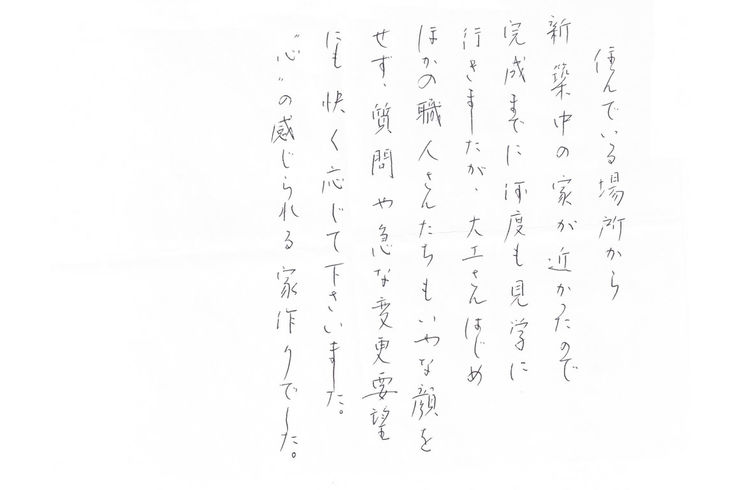 住んでいる場所から
新築中の家が近かったので
完成までに何度も見学に
行きましたが、大工さんはじめ
ほかの職人さんたちもいやな顔を
せず、質問や急な変更要望
にも快く応じて下さいました。
“心”の感じられる家作りでした。